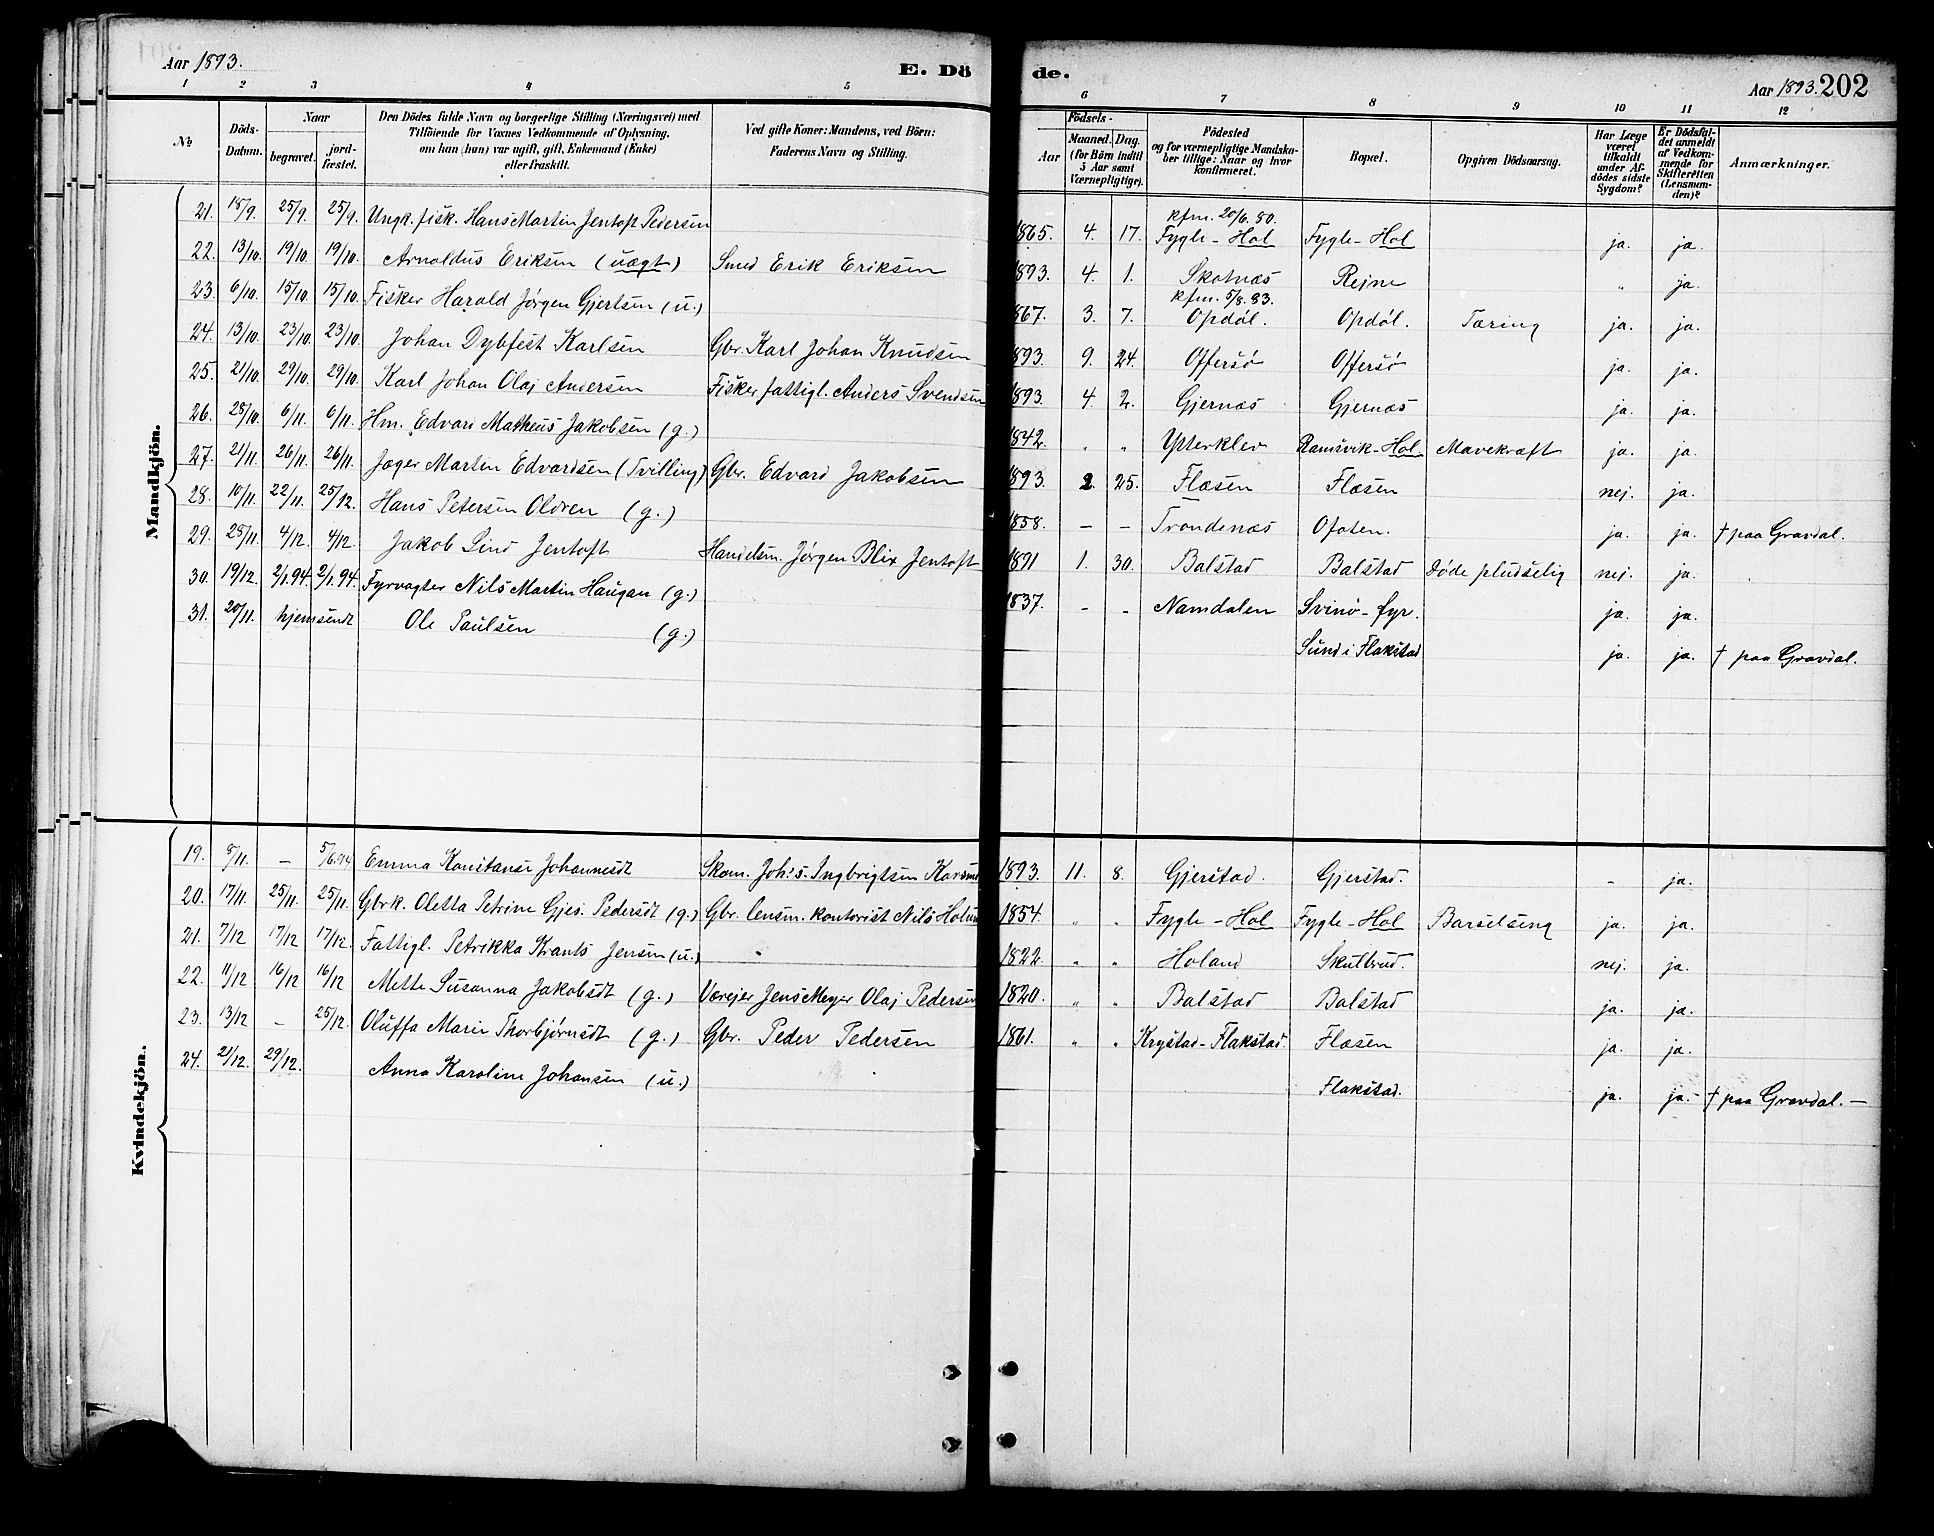 Aar 1893. E. Dö de. Aar 1893. 202
1 2 3 4 5 6 7 8 9 10 11 12
No
Döds-Datum.
Naar
begravet.
jord-fæstet.
Den Dödes fulde Navn og borgerlige Stilling (Næringsvei) med
Tilföiende för Voxnes Vedkommende af Oplysning,
om han (hun) var ugift, gift, Enkemand (Enke)
eller fraskilt.
Ved gifte Koner: Mandens, ved Börn:
Faderens Navn og Stilling.
Födsels-
Aar
Maaned. Dag.
(for Börn indtil
5 Aar samt
Værnepligtige).
Födested
og for værnepligtige Mandska-
ber tillige: Naar og hvor
konfirmeret.
Bopæl.
Opgiven Dödsaarsag.
Har Læge
været
tilkaldt
under Af-
dödes sidste
Sygdom?
Er Dödsfal-
det anmeldt
af Vedkom-
mende for
Skifteretten
(Lensman-
den)?
Anmærkninger.
Mandkjön.
21. 15/9. 25/9. 25/9. Ungk. fisk. Hans Martin Jentoft Pedersen 1865. 4. 17. kfm. 20/6. 80. Fygle-Hol Fygle-Hol ja. ja.
22. 13/10 19/10 19/10. Arnoldus Eriksen (uægt) Smed Erik Eriksen 1893. 4. 1. Skotnæs Rejne " ja.
23. 6/10. 15/10. 15/10. Fisker Harald Jørgen Gjertsen (u.) 1867. 3. 7. kfm. 5/8. 83. Opdøl. Opdøl. Tæring ja. ja.
24. 13/10. 23/10. 23/10. Johan Dybfest Karlsen Gbr. Karl Johan Knudsen 1893. 9. 24. Offersø Offersø ja. ja.
25. 21/10. 29/10. 29/10. Karl Johan Olaj Andersen Fisker fattigl. Anders Svendsen 1893. 4. 2. Gjernæs Gjernæs ja. ja.
26. 28/10. 6/11. 6/11. Hm. Edvard Matheus Jakobsen (g.) 1842. " " Ytterklev Ramsvik-Hol Mavekræft ja. ja.
27. 21/11. 26/11. 26/11. Jæger Marten Edvardsen (Tvilling) Gbr. Edvard Jakobsen 1893 2. 25. Flæsen Flæsen nej. ja.
28. 10/11. 22/11. 25/12. Hans Petersen Oldren (g.) 1858. - - Trondenæs Ofoten. ja. ja. † paa Gravdal.
29. 28/11. 4/12. 4/12. Jakob Lind Jentoft Handelsm. Jørgen Blix Jentoft 1891 1. 30. Balstad Balstad Døde pludselig nej. ja.
30. 19/12. 2/1.94. 2/1.94. Fyrvagter Nils Martin Haugan (g.) 1837. - - Namdalen Svinø-fyr. ja. ja.
31. 20/11. hjemsendt Ole Paulsen (g.) Sund i Flakstad ja. ja. † paa Gravdal.
Kvindekjön.
19. 8/11. - 5/6.94 Emma Konstanse Johannesdt Skom. Joh's. Ingbrigtsen 1893. 11. 8. Gjerstad. Gjerstad. - ja.
20. 17/11. 25/11. 25/11. Gbrk. Oletta Petrine Gjes. Pedersdt (g.) Gbr. lensm. kontorist Nils 1854. " " Fygle-Hol Fygle-Hol Barselseng ja. ja.
21. 7/12 17/12 17/12. Fattigl. Petrikka Krants Jensen (u.) 1822. " " Holand Skulbrud. nej. ja.
22. 11/12 16/12 16/12 Mette Susanna Jakobsdt (g.) Værejer Jens Meyer Olaj Pedersen 1820. " " Balstad Balstad ja. ja.
23. 13/12 - 25/12. Oluffa Marie Thorbjørnsdt (g.) Gbr. Peder Pedersen 1861. " " Krystad-Flakstad. Flæsen ja. ja.
24. 21/12. 29/12. Anna Karoline Johansen (u.) Flakstad. ja. ja.- † paa Gravdal.-